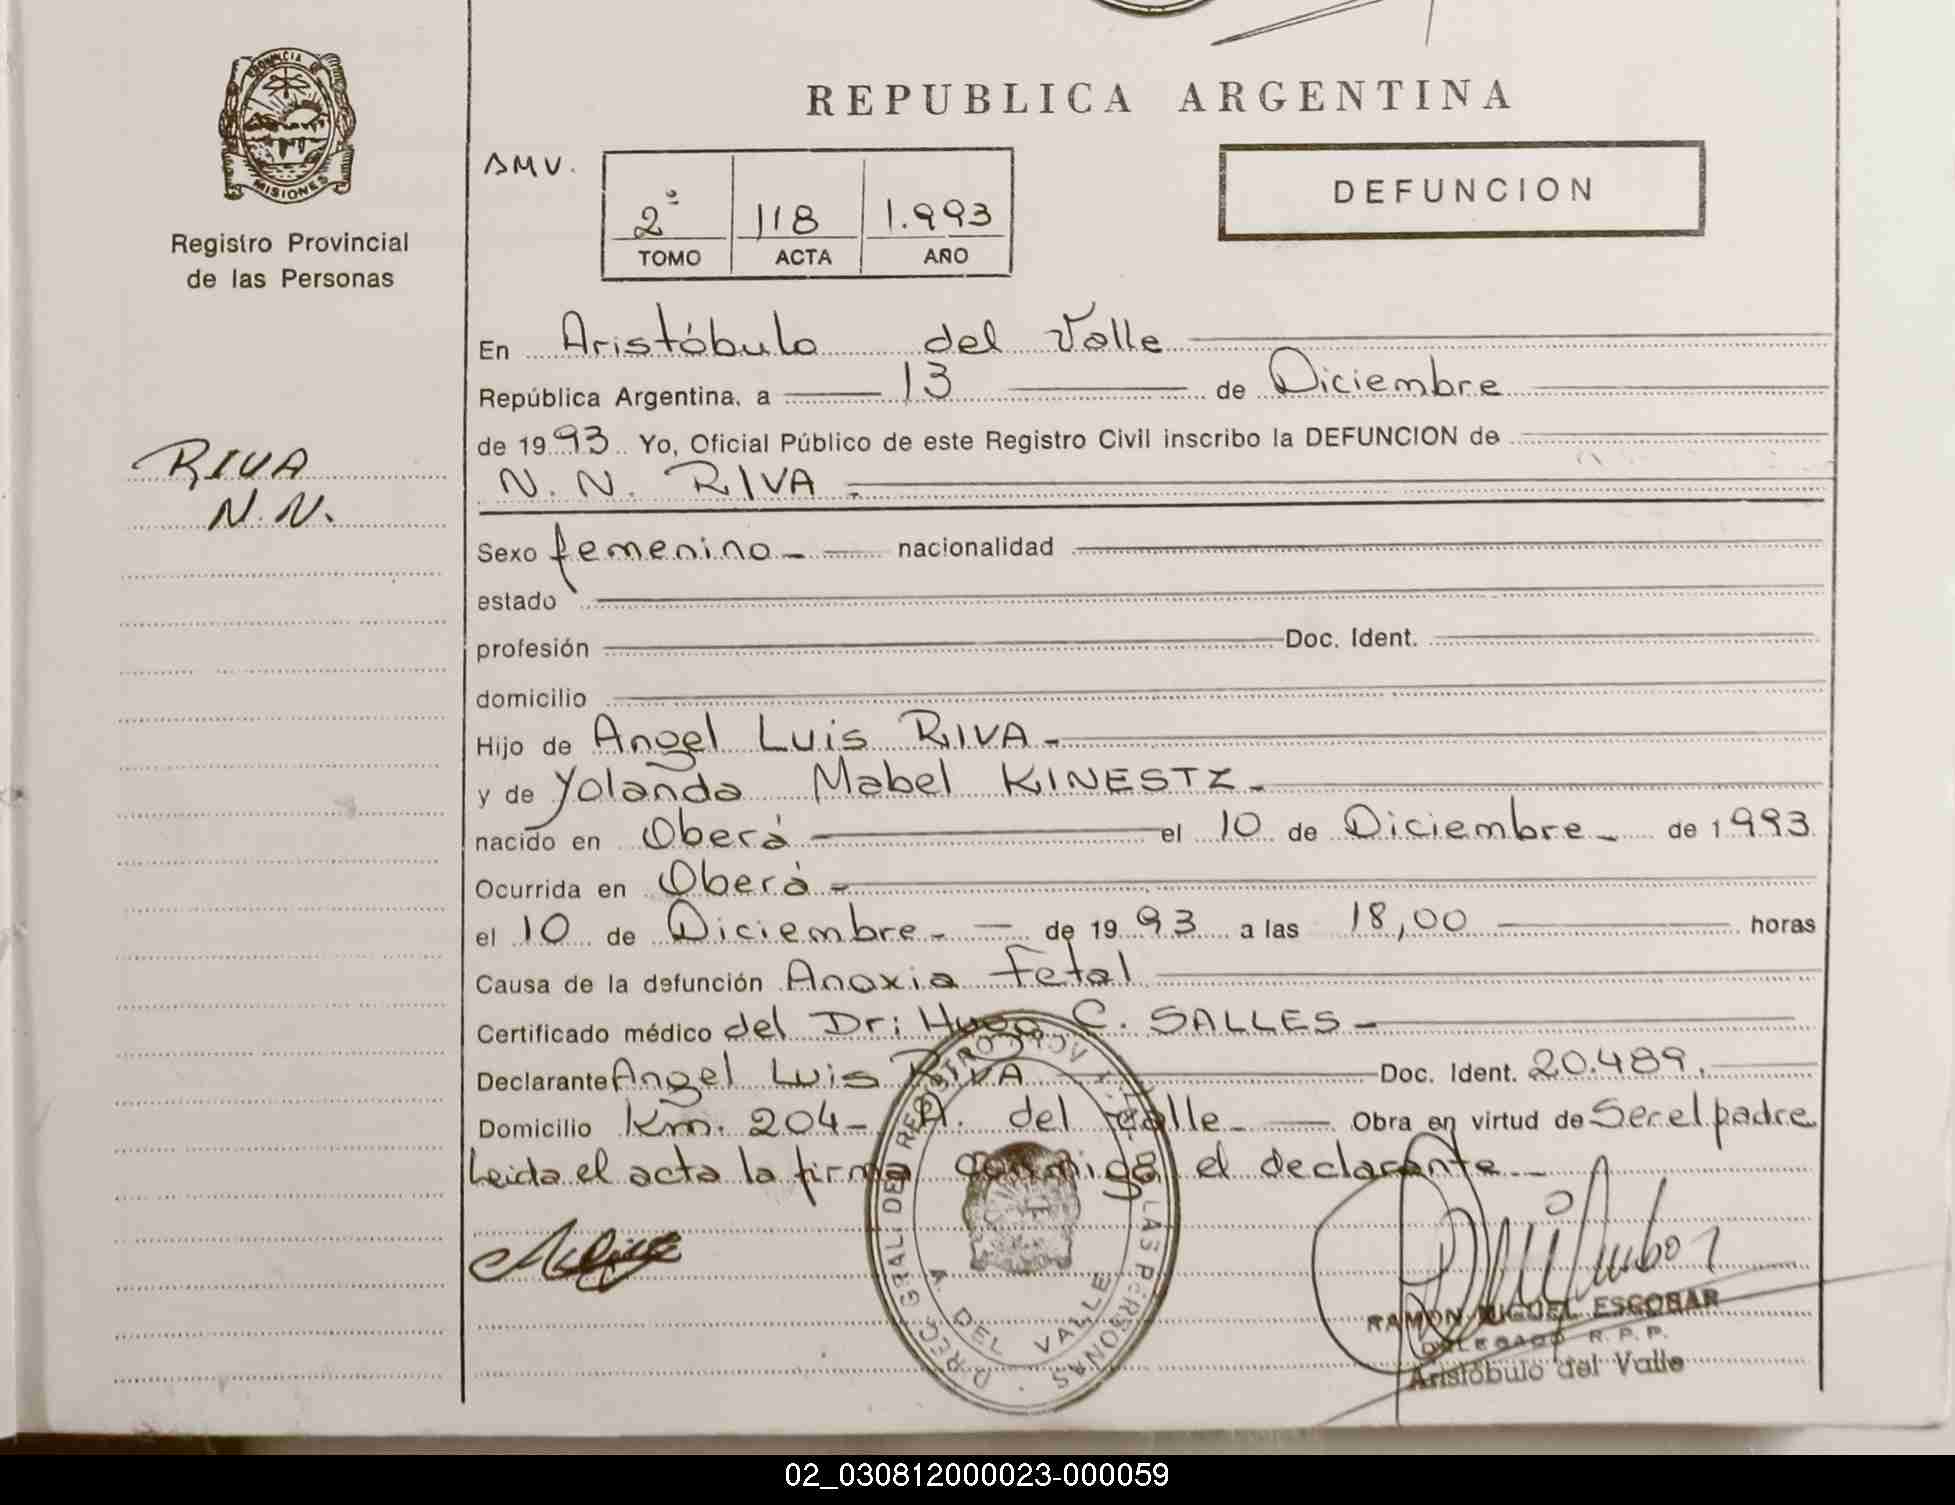 PROVINCIA DE
MISIONES
Registro Provincial
de las Personas
RIVA
N.N.
REPUBLICA ARGENTINA
AMV.
2º 118 1.993
TOMO ACTA AÑO
DEFUNCION
En Aristóbulo del Valle
República Argentina, a 13 de Diciembre
de 1993 Yo, Oficial Público de este Registro Civil inscribo la DEFUNCION de
N. N. RIVA.
Sexo femenino nacionalidad
estado
profesión Doc. Ident.
domicilio
Hijo de Angel Luis RIVA
y de Yolanda Mabel KINESTZ
nacido en Oberá el 10 de Diciembre de 1993
Ocurrida en Oberá
el 10 de Diciembre de 1993 a las 18,00 horas
Causa de la defunción Anoxia Fetal
Certificado médico del Dr: Hugo C. SALLES
Declarante Angel Luis RIVA Doc. Ident. 20.489.
Domicilio Km. 204- A. del Valle Obra en virtud de Ser el padre
Leida el acta la firma conmigo el declarante
A. DEL VALLE
RAMON MIGUEL ESCOBAR
DELEGADO R. P. P.
Aristóbulo del Valle
02_030812000023-000059